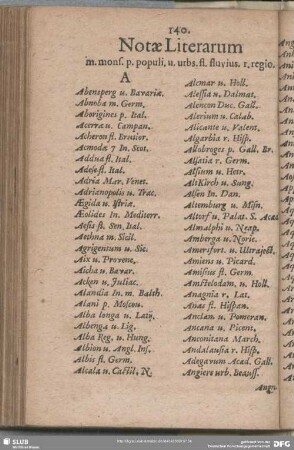 140.
Notæ Literarum
m. mons. p. populi, u. urbs. fl. fluvius. r. regio.
A
Abensperg u. Bavariæ.
Abnoba m. Germ.
Aborigines p. Ital.
Acerræ u. Campan.
Acheron fl. Brutior.
Acmodæ 7 In. Scot.
Addua fl. Ital.
Adese fl. Ital.
Adria Mar. Venet.
Adrianopolis u. Trac.
Ægida u. Istriæ.
Æolides In. Mediterr.
Aesis fl. Sen. Ital.
Aethna m. Sicil.
Agrigentum u. Sic.
Aix u. Provenc.
Aicha u. Bavar.
Acken u. Juliac.
Alandia In. m. Balth.
Alani p. Moscou.
Alba longa u. Latij.
Albenga u. Lig.
Alba Reg. u. Hung.
Albion u. Angl. Ins.
Albis fl. Germ.
Alcala u. Castil. N.
Alcmar u. Holl.
Alessia u. Dalmat.
Alencon Duc. Gall.
Alerium u. Calab.
Alicante u. Valent.
Algarbia r. Hisp.
Allobroges p. Gall. Br.
Alsatia r. Germ.
Alsium u. Hetr.
AltKirch u. Sung.
Alsen In. Dan.
Altemburg u. Misn.
Altorf u. Palat. S. Acad
Almalphi u. Neap.
Amberga u. Noric.
Amersfort. u. Utrajest.
Amiens u. Picard.
Amisius fl. Germ.
Amstelodam. u. Holl.
Anagnia r. Lat.
Anas fl. Hispan.
Anclam u. Pomeran.
Ancana u. Picent.
Anconitana March.
Andalausia r. Hisp.
Andegarum Acad. Gall.
Angiers urb. Beauss.
Angr.